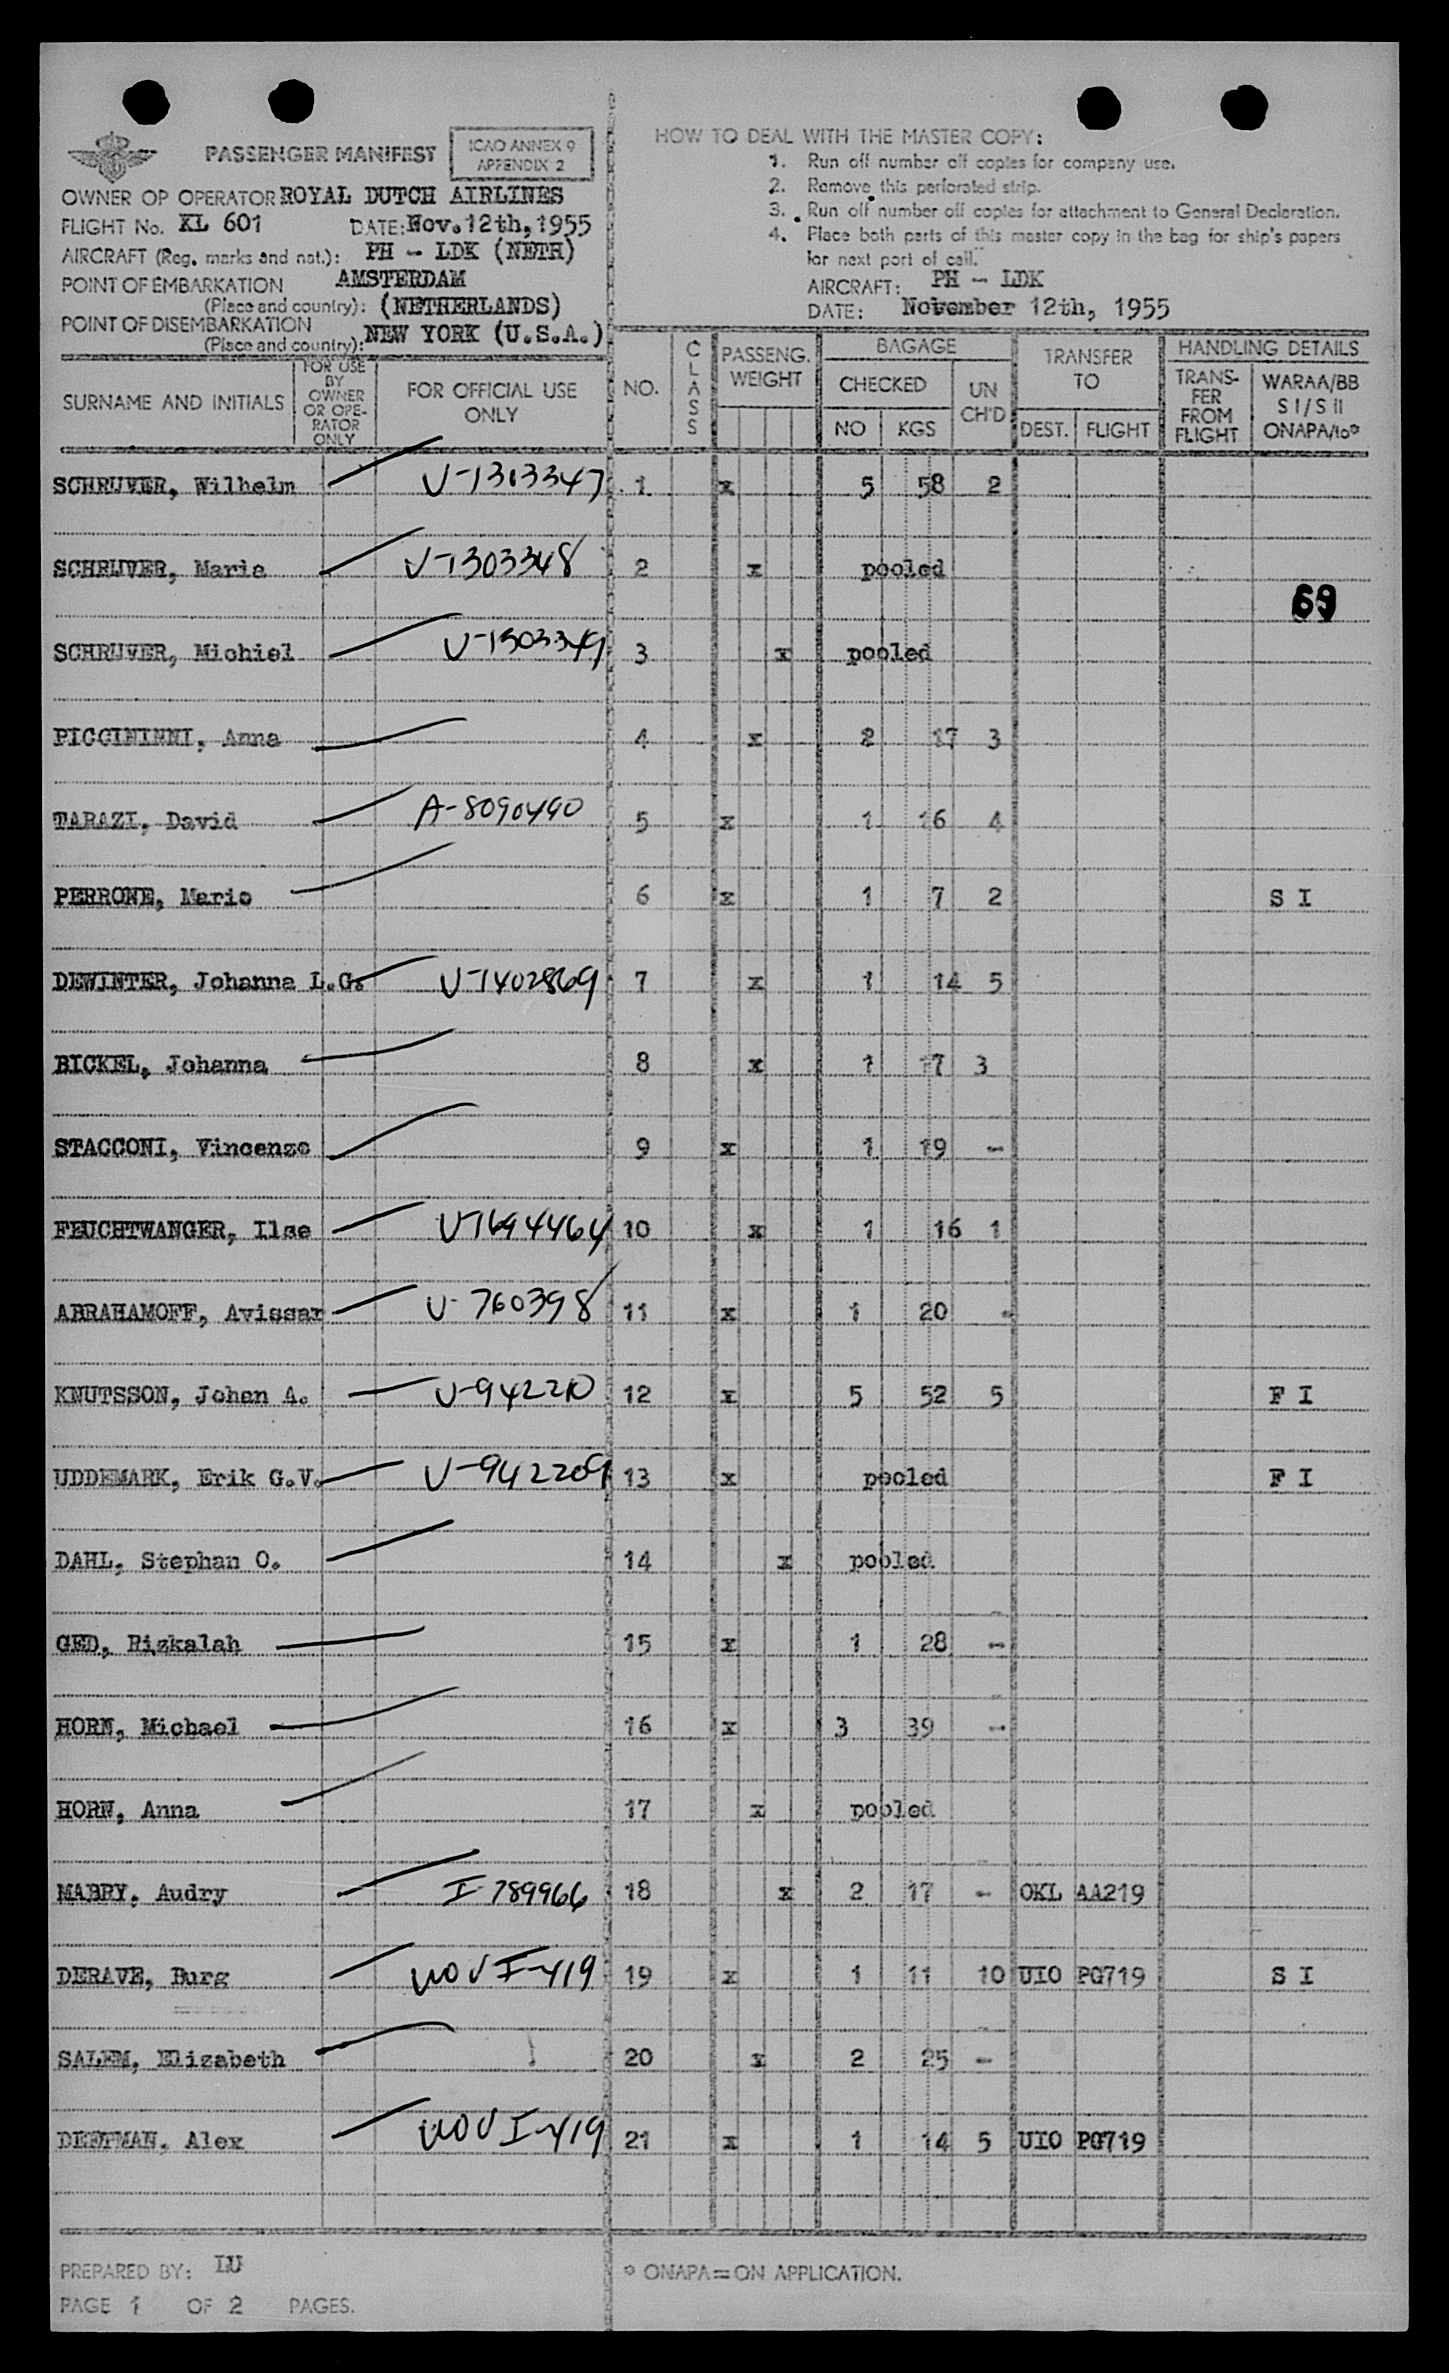 PASSENGER MANIFEST
ICAO ANNEX 9
APPENDIX 2
OWNER OP OPERATOR ROYAL DUTCH AIRLINES
FLIGHT No. KL 601 DATE: Nov. 12th, 1955
AIRCRAFT (Reg. marks and nat.): PH - LDK (NETH)
POINT OF EMBARKATION AMSTERDAM
(Place and country): (NETHERLANDS)
POINT OF DISEMBARKATION
(Place and country): NEW YORK (U.S.A.)
HOW TO DEAL WITH THE MASTER COPY:
1. Run off number off copies for company use.
2. Remove this perforated strip.
3. Run off number off copies for attachment to General Declaration.
4. Place both parts of this master copy in the bag for ship's papers
for next port of call.
AIRCRAFT: PH - LDK
DATE: November 12th, 1955
SURNAME AND INITIALS
FOR USE BY OWNER OR OPE-RATOR ONLY
FOR OFFICIAL USE ONLY
NO.
CLASS
PASSENG. WEIGHT
BAGAGE
CHECKED
NO KGS
UN CH'D
TRANSFER TO
DEST. FLIGHT
HANDLING DETAILS
TRANS-FER FROM FLIGHT
WARAA/BB S I/S II ONAPA/to*
SCHRUVER, Wilhelm V-1303347 1 x 5 58 2
SCHRUVER, Maria V-1303348 2 x pooled
69
SCHRUVER, Michiel V-1303349 3 x pooled
PICCININNI, Anna 4 x 2 17 3
TARAZI, David A-8090490 5 x 1 16 4
PERRONE, Mario 6 x 1 7 2 S I
DEWINTER, Johanna L.G. V-1402869 7 x 1 14 5
BICKEL, Johanna 8 x 1 17 3
STACCONI, Vincenzo 9 x 1 19 -
FEUCHTWANGER, Ilse V-1694464 10 x 1 16 1
ABRAHAMOFF, Avissar V-760398 11 x 1 20 -
KNUTSSON, Johan A. V-942210 12 x 5 52 5 F I
UDDEMARK, Erik G.V. V-942209 13 x pooled F I
DAHL, Stephan O. 14 x pooled
GED, Rizkalah 15 x 1 28 -
HORN, Michael 16 x 3 39 -
HORN, Anna 17 x pooled
MABRY, Audry I-789966 18 x 2 17 - OKL AA219
DERAVE, Burg WOV I-419 19 x 1 11 10 UIO PG719 S I
SALEM, Elizabeth 20 x 2 25 -
DEETMAN, Alex WOV I-419 21 x 1 14 5 UIO PG719
PREPARED BY: LU
PAGE 1 OF 2 PAGES.
* ONAPA = ON APPLICATION.